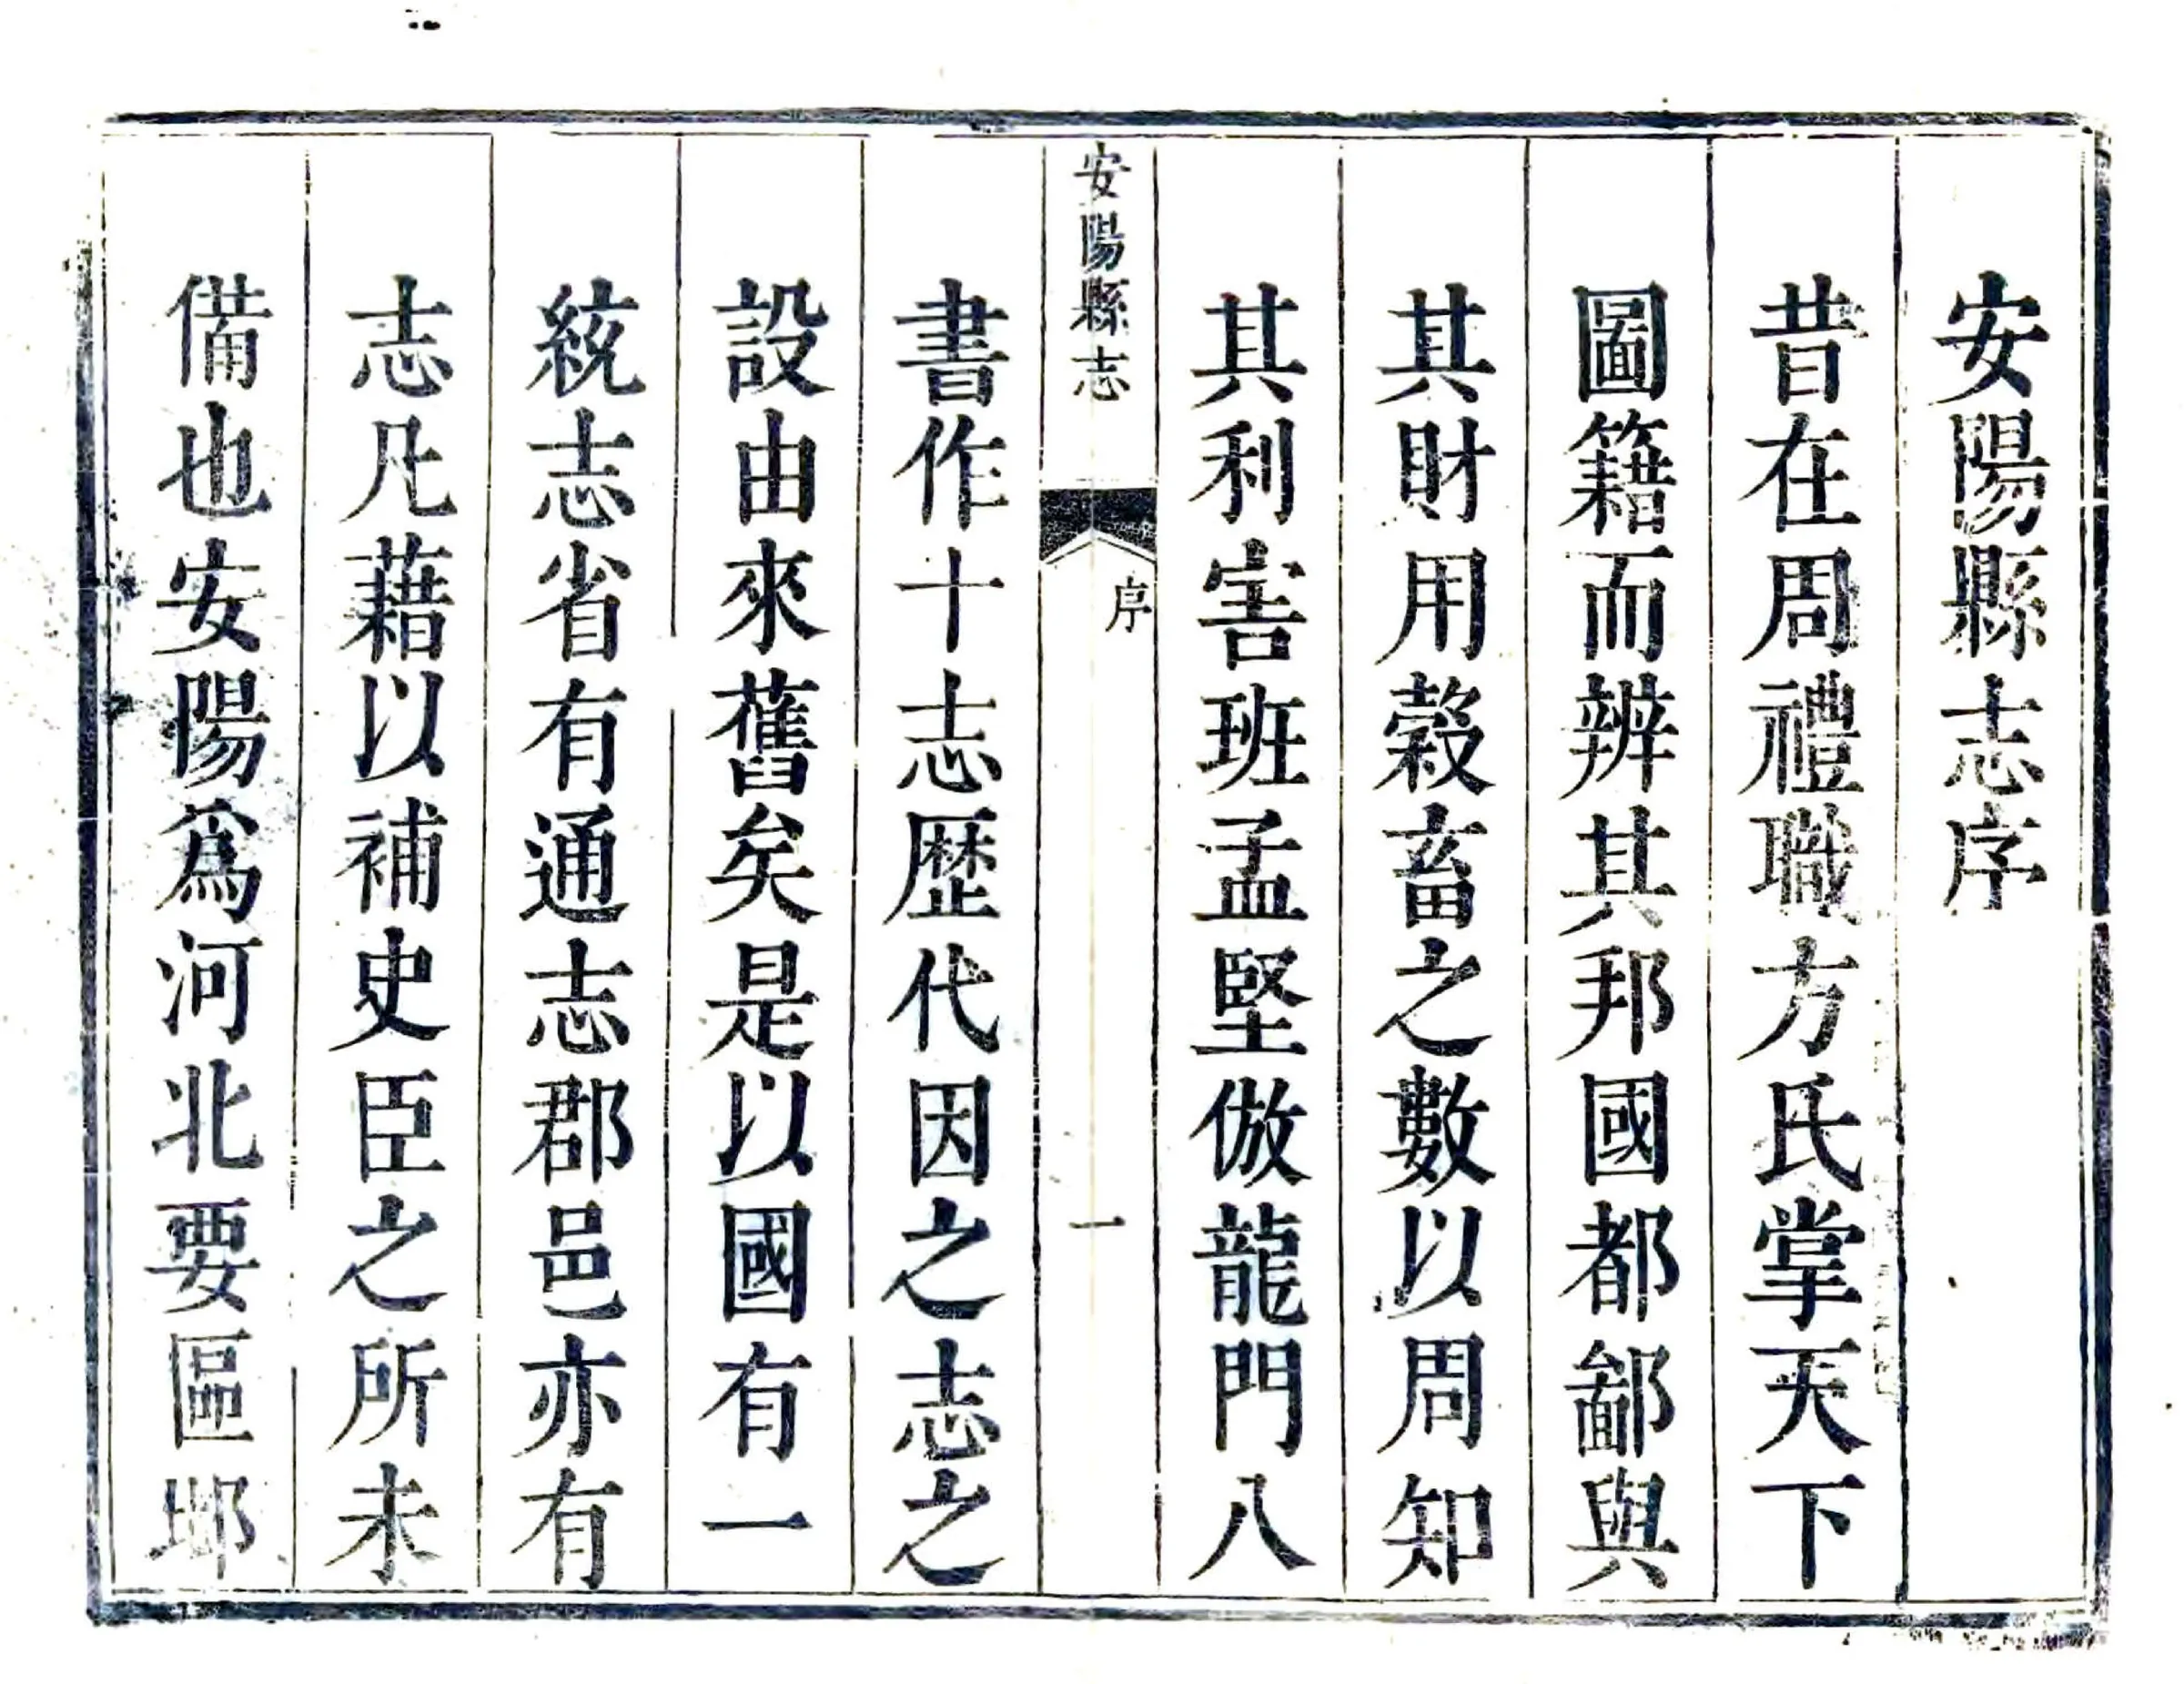 安陽縣志序
昔在周禮職方氏掌天下
圖籍而辨其邦國都鄙與
其財用榖畜之數以周知
其利害班孟堅倣龍門八
安陽縣志
序
一
書作十志歷代因之志之
設由來舊矣是以國有一
統志省有通志郡邑亦有
志凡藉以補史臣之所未
備也安陽爲河北要區鄴